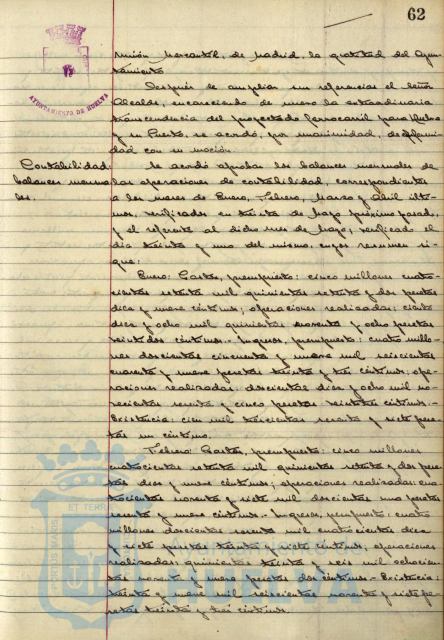 62
AYUNTAMIENTO DE HUELVA
Unión Mercantil, de Madrid, la gratitud del Ayun-
tamiento
Después de ampliar sus referencias el señor
Alcalde, encareciendo de nuevo la extraordinaria
trascendencia del proyectado ferrocarril para Huelva
y su Puerto, se acordó, por unanimidad, de conformi-
dad con su moción.
Contabilidad:
balances mensua-
les.
Se acordó aprobar los balances mensuales de
las operaciones de contabilidad, correspondientes
a los meses de Enero, Febrero, Marzo y Abril últi-
mos, verificados en treinta de Mayo próximo pasado,
y el referente al dicho mes de Mayo, verificado el
día treinta y uno del mismo, cuyo resumen si-
gue:
Enero: Gastos, presupuesto: cinco millones cuatro-
cientas setenta mil quinientas setenta y dos pesetas
diez y nueve céntimos; operaciones realizadas: ciento
diez y ocho mil quinientas noventa y ocho pesetas
veintidós céntimos.- Ingresos, presupuesto: cuatro millo-
nes doscientas cincuenta y nueve mil seiscientas
cuarenta y nueve pesetas treinta y tres céntimos; ope-
raciones realizadas: doscientas diez y ocho mil no-
vecientas sesenta y cinco pesetas céntimos.-
Existencia: cien mil trescientas sesenta y siete pese-
tas un céntimo.
Febrero: Gastos, presupuesto: cinco millones
cuatrocientas setenta mil quinientas setenta y dos pese-
tas diez y nueve céntimos; operaciones realizadas: cua-
trocientas noventa y siete mil doscientas una pesetas
sesenta y nueve céntimos.- Ingresos, presupuesto: cuatro
millones doscientas sesenta mil cuatrocientas diez
y siete pesetas treinta y siete céntimos; operaciones
realizadas: quinientas treinta y seis mil ochocien-
tas noventa y nueve pesetas dos céntimos.- Existencia:
treinta y nueve mil seiscientas noventa y siete pe-
setas treinta y tres céntimos.
PORTUS MARIS ET TERRAE
HUELVA